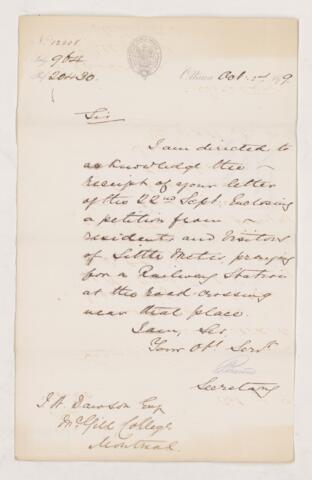 No. 12008
Subj 964
Ref 20420.
Ottawa Oct. 2nd 1879
Sir
I am directed to
acknowledge the
receipt of your letter
of the 22nd Sept. Enclosing
a petition from
residents and Visitors
of Little Metis praying
for a Railway Station
at the road crossing
near that place.
I am, Sir
Your Obt. Servt.
Secretary
J. W. Dawson Esq
McGill College
Montreal.